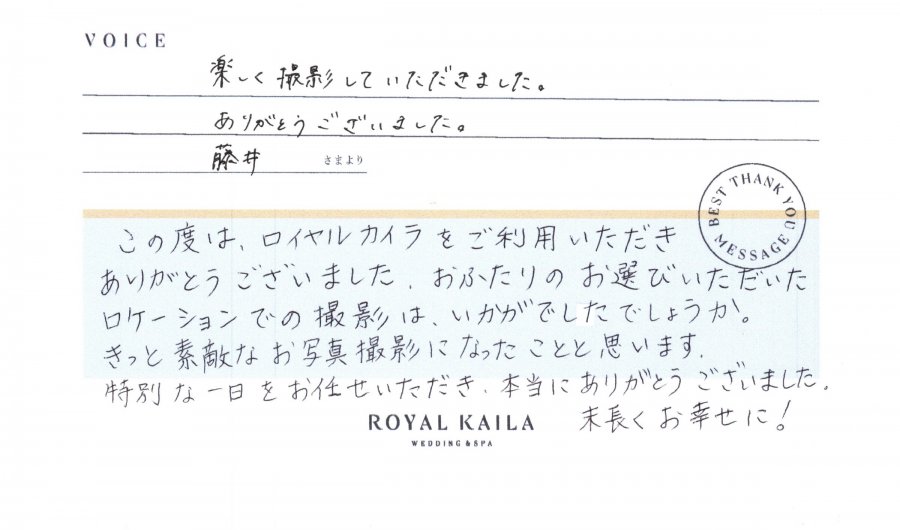 VOICE
楽しく撮影していただきました。
ありがとうございました。
藤井 さまより
BEST THANK YOU MESSAGE
この度は、ロイヤルカイラをご利用いただき
ありがとうございました。おふたりのお選びいただいた
ロケーションでの撮影は、いかがでしたでしょうか。
きっと素敵なお写真撮影になったことと思います。
特別な一日をお任せいただき、本当にありがとうございました。
末長くお幸せに!
ROYAL KAILA
WEDDING & SPA